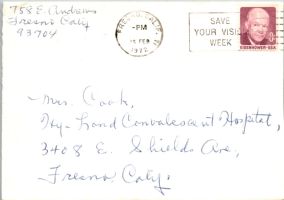 758 E. Andrews
Fresno Caly
93704
FRESNO, CALIF.
PM
15 FEB
1972
SAVE
YOUR VISION
WEEK
EISENHOWER·USA
Mrs. Cook,
Hy-Lond Convalescent Hospital,
3408 E. Shields Ave,
Fresno Caly.